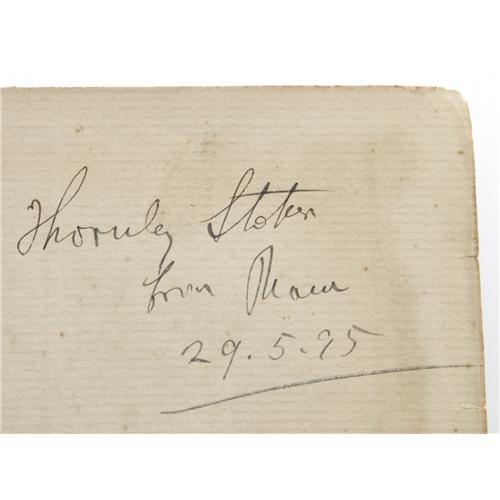 Thornley Stoker
from Bram
29.5.95